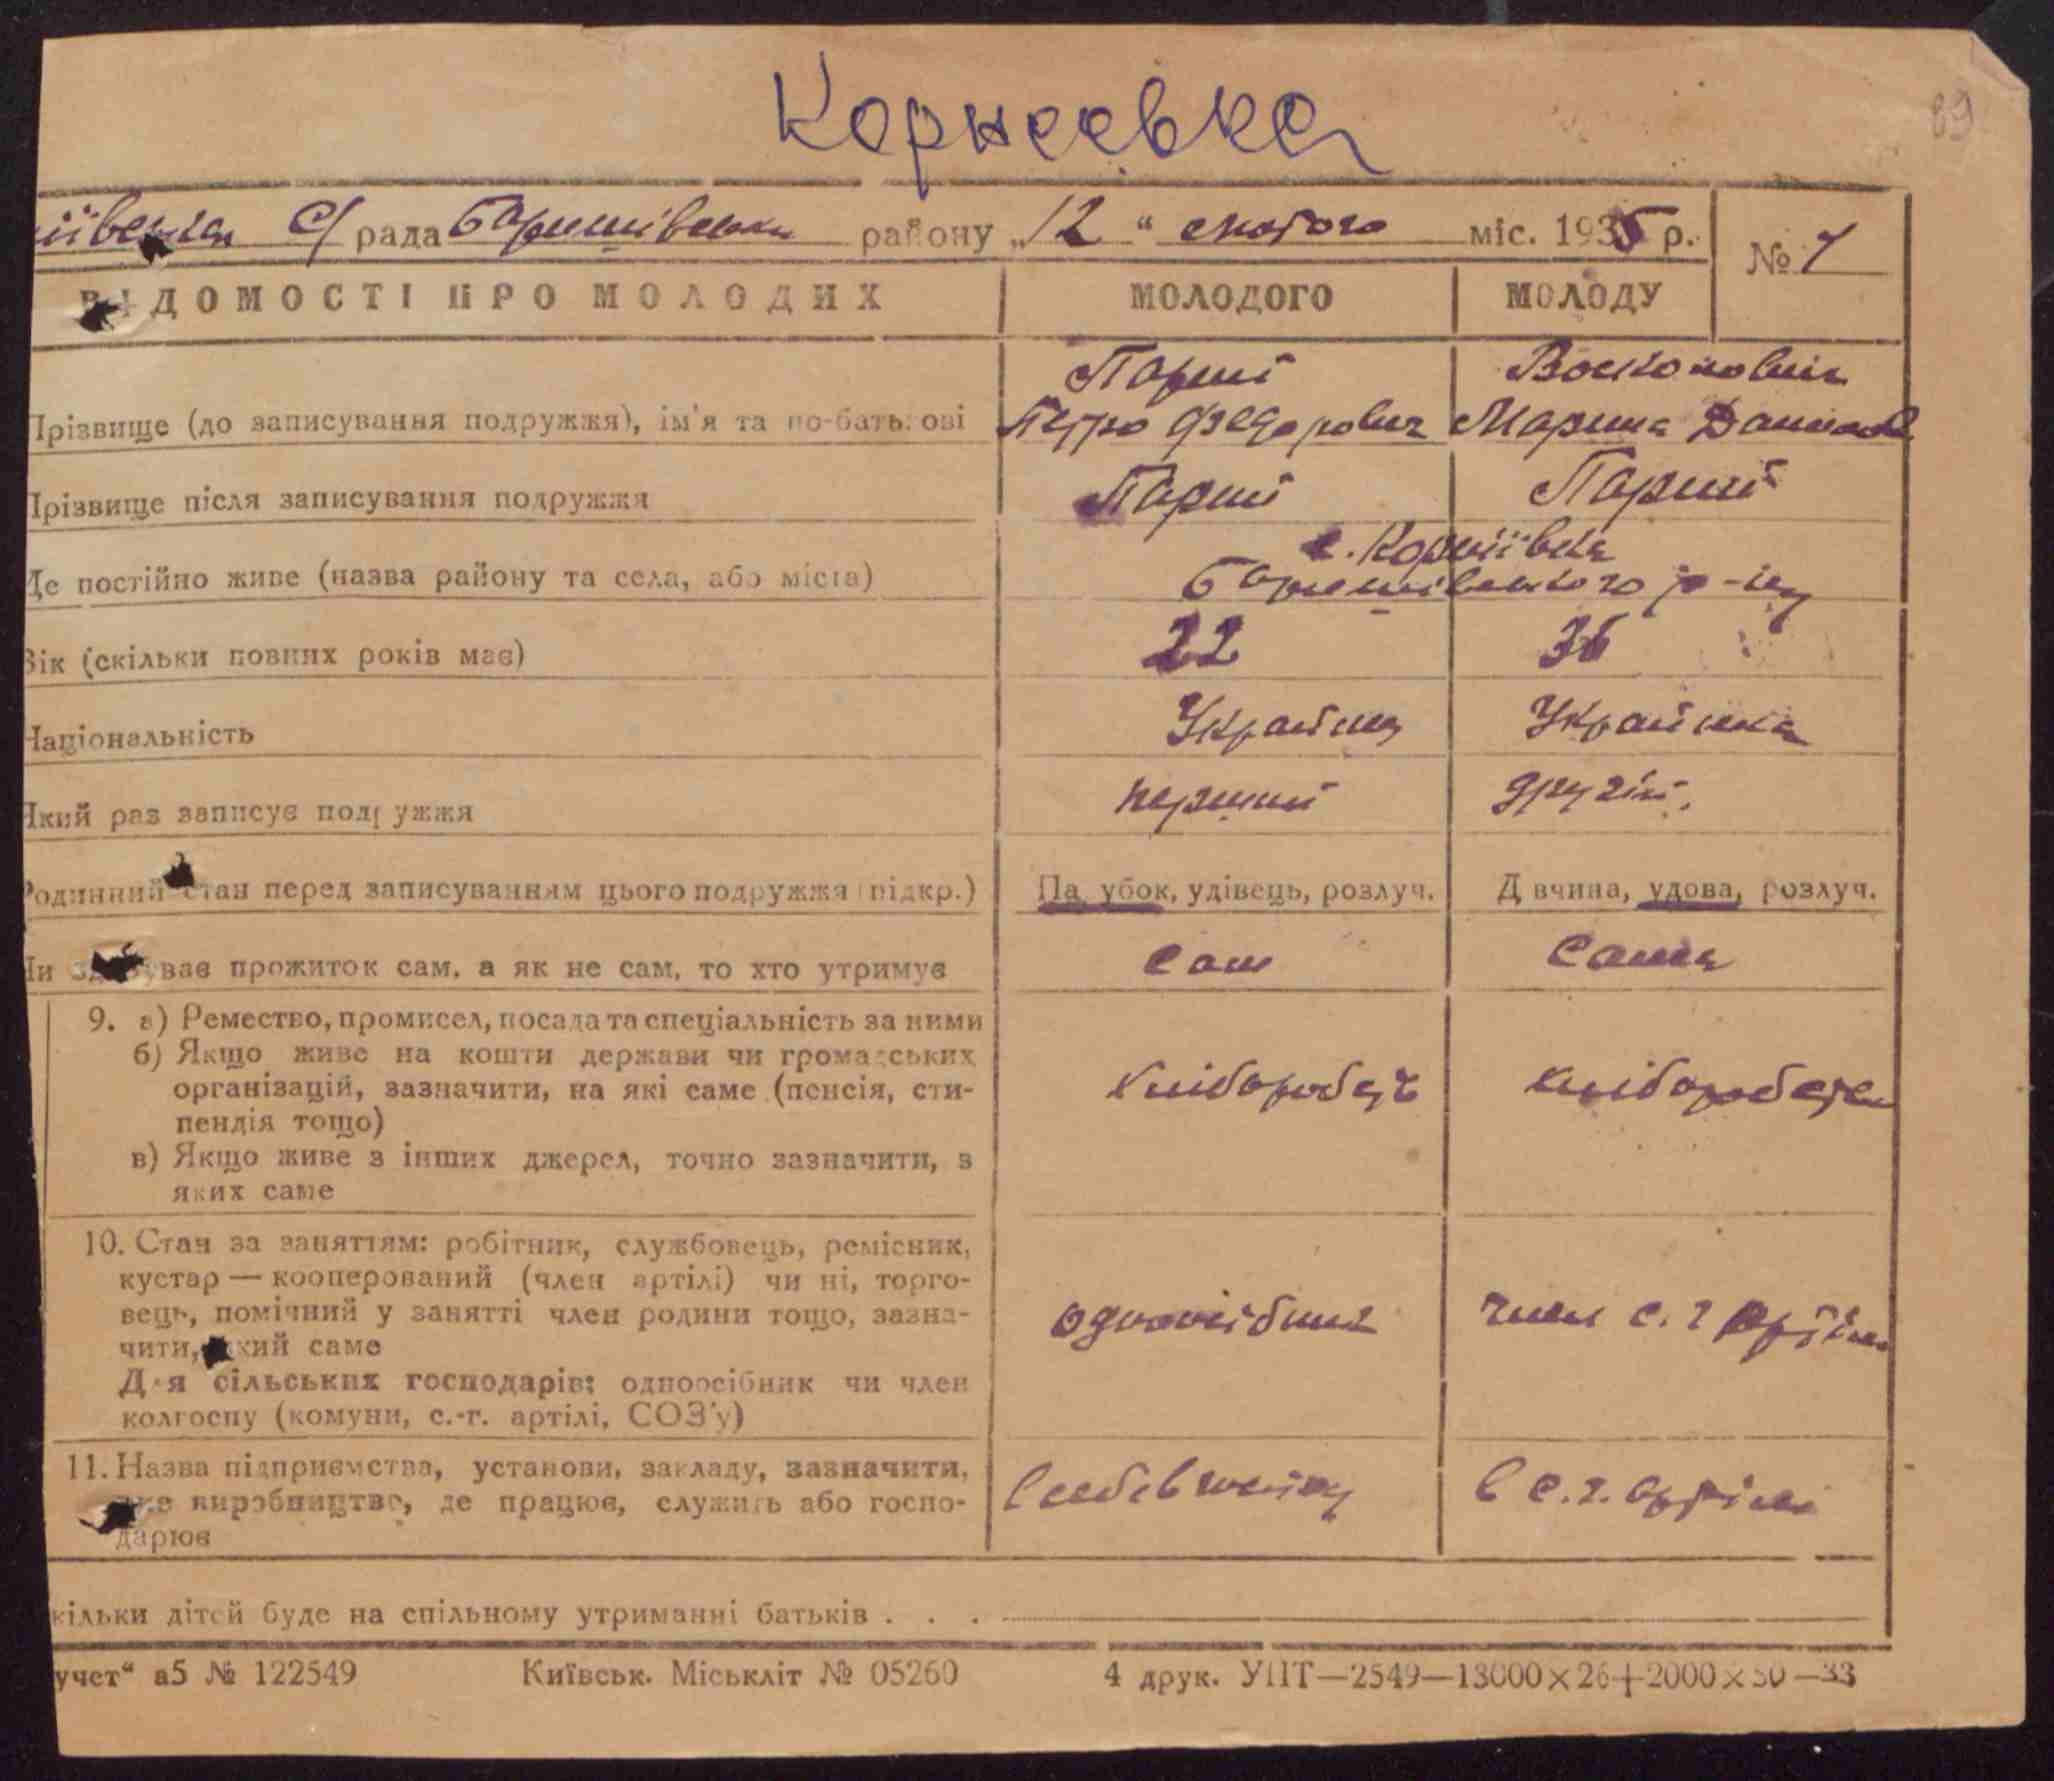 Корнеевка
89
іївська С/рада Баришівськ району „12“ лютого міс. 1935 р. № 7
ВІДОМОСТІ ПРО МОЛОДИХ МОЛОДОГО МОЛОДУ
Парий
Прізвище (до записування подружжя), ім'я та по-батькові Петро Федорович Марина
Прізвище після записування подружжя Парий Парий
с. Корніївка
Де постійно живе (назва району та села, або міста) Баришівського р-ну
Вік (скільки повних років має) 22 36
Національність Українец Українка
Який раз записує подружжя перший другий.
Родинний стан перед записуванням цього подружжя (підкр.) Парубок, удівець, розлуч. Дівчина, удова, розлуч.
Чи здобуває прожиток сам, а як не сам, то хто утримує сам сама
9. а) Ремество, промисел, посада та спеціальність за ними
б) Якщо живе на кошти держави чи громадських
організацій, зазначити, на які саме (пенсія, сти- хлібороб
пендія тощо)
в) Якщо живе з інших джерел, точно зазначити, з
яких саме
10. Стан за заняттям: робітник, службовець, ремісник,
кустар — кооперований (член артілі) чи ні, торго-
вець, помічний у занятті член родини тощо, зазна- одноосібник член с. г артіли
чити, який саме
Для сільських господарів: одноосібник чи член
колгоспу (комуни, с.-г. артілі, СОЗ'у)
11. Назва підприємства, установи, закладу, зазначити,
яке виробництво, де працює, служить або госпо- в с. г. артілі
дарює
кільки дітей буде на спільному утриманні батьків . . .
учет“ а5 № 122549 Київськ. Міськліт № 05260 4 друк. УПТ—2549—13000×26+2000×50—33